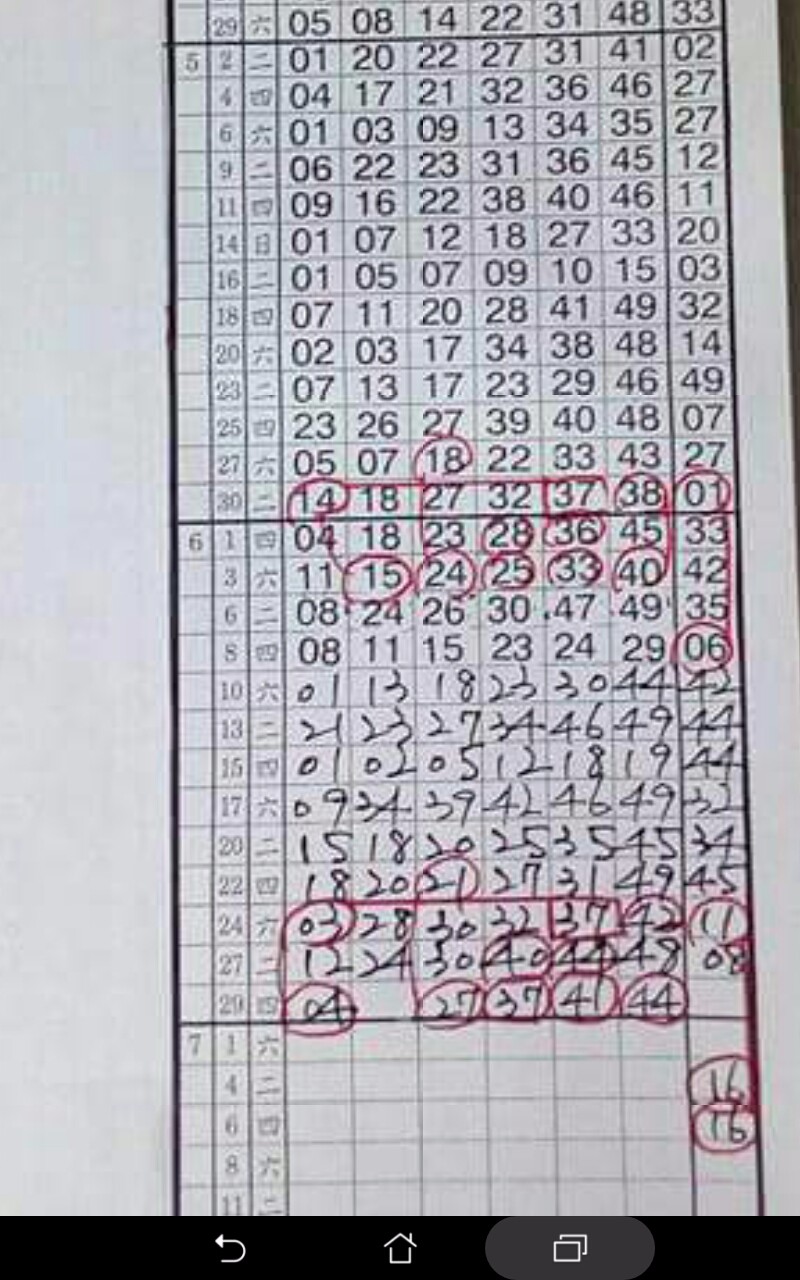 29 六 05 08 14 22 31 48 33
5 2 二 01 20 22 27 31 41 02
4 四 04 17 21 32 36 46 27
6 六 01 03 09 13 34 35 27
9 二 06 22 23 31 36 45 12
11 四 09 16 22 38 40 46 11
14 日 01 07 12 18 27 33 20
16 二 01 05 07 09 10 15 03
18 四 07 11 20 28 41 49 32
20 六 02 03 17 34 38 48 14
23 二 07 13 17 23 29 46 49
25 四 23 26 27 39 40 48 07
27 六 05 07 18 22 33 43 27
30 二 14 18 27 32 37 38 01
6 1 四 04 18 23 28 36 45 33
3 六 11 15 24 25 33 40 42
6 二 08 24 26 30 47 49 35
8 四 08 11 15 23 24 29 06
10 六 01 13 18 23 30 44 42
13 二 21 23 27 34 46 49 44
15 四 01 02 05 12 18 19 44
17 六 09 34 39 42 46 49 32
20 二 15 18 20 25 35 45 34
22 四 18 20 21 27 31 49 45
24 六 03 28 30 32 37 42 11
27 二 12 24 30 40 44 48 08
29 四 04 27 37 41 44
7 1 六
4 二 16
6 四 16
8 六
11 二